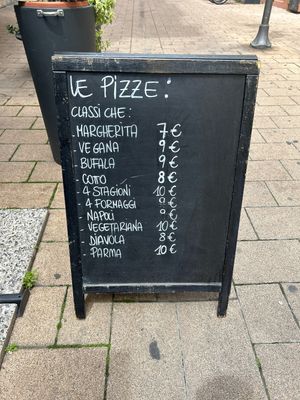 LE PIZZE:
CLASSICHE:
- MARGHERITA 7 €
- VEGANA 9 €
- BUFALA 9 €
- COTTO 8 €
- 4 STAGIONI 10 €
- 4 FORMAGGI 9 €
- NAPOLI 9 €
- VEGETARIANA 10 €
- DIAVOLA 8 €
- PARMA 10 €